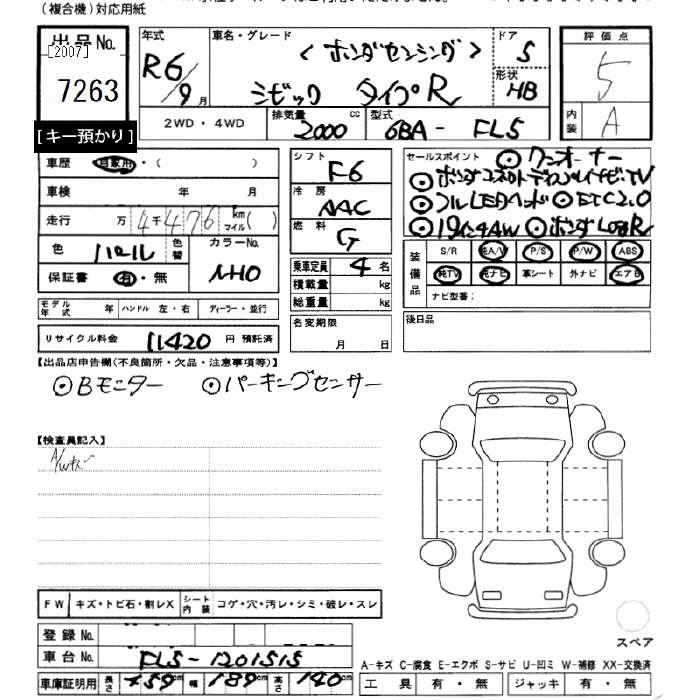 (複合機)対応用紙
出品No.
[2007]
7263
[キー預かり]
年式 R6/9月
車名・グレード <ホンダセンシング>
シビック タイプR
ドア 5
形状 HB
評価点 5
内装 A
2WD・4WD
排気量 2000 cc
型式 6BA-FL5
車歴 自家用・( )
車検 年 月
走行 万4千476 kmマイル( )
色 パール 色替
カラーNo. NH0
保証書 有・無
シフト F6
冷房 AAC
燃料 G
乗車定員 4名
積載量 kg
総重量 kg
セールスポイント ◎ワンオーナー
◎ホンダコネクトディスプレイナビTV
◎フルLEDヘッド ◎ETC2.0
◎19インチAW ◎ホンダLOGR
装備品
S/R 純A/W P/S P/W ABS
純TV 純ナビ 革シート 外ナビ エアB
ナビ型番:
モデル年式 年 ハンドル 左・右 ディーラー・並行
名変期限 月 日
後日品
リサイクル料金 11420 円 預託済
【出品店申告欄(不良箇所・欠品・注意事項等)】
◎Bモニター ◎パーキングセンサー
【検査員記入】
A/Wキズ
FW キズ・トビ石・割レX シート内装 コゲ・穴・汚レ・シミ・破レ・スレ
登録No.
車台No. FL5-1201515
車庫証明用 長さ 459cm 幅 189cm 高さ 140cm
スペア
A-キズ C-腐食 E-エクボ S-サビ U-凹ミ W-補修 XX-交換済
工具 有・無 ジャッキ 有・無